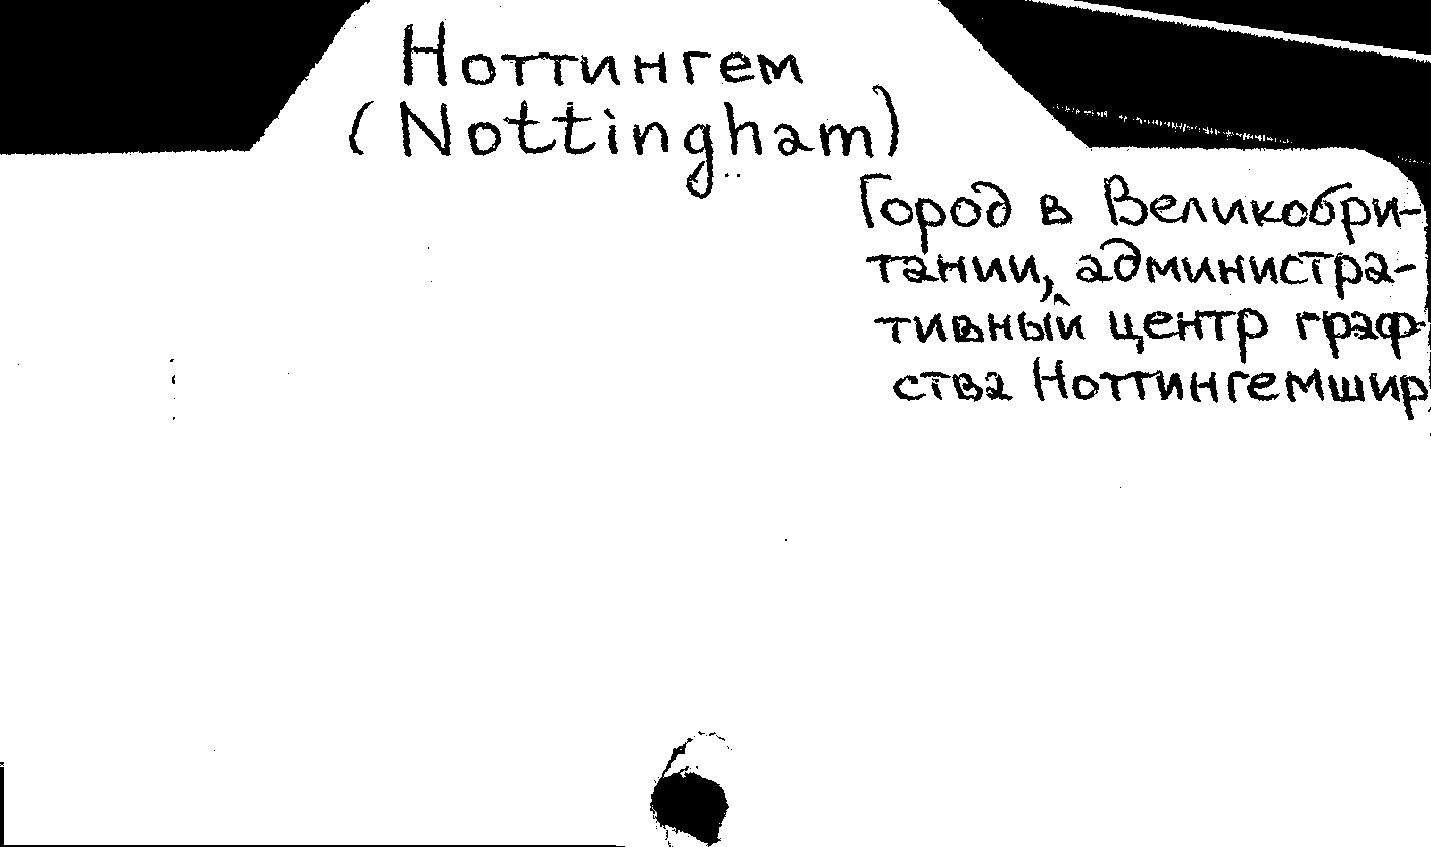 Ноттингем
(Nottingham)
Город в Великобри-
тании, администра-
тивный центр граф-
ства Ноттингемшир